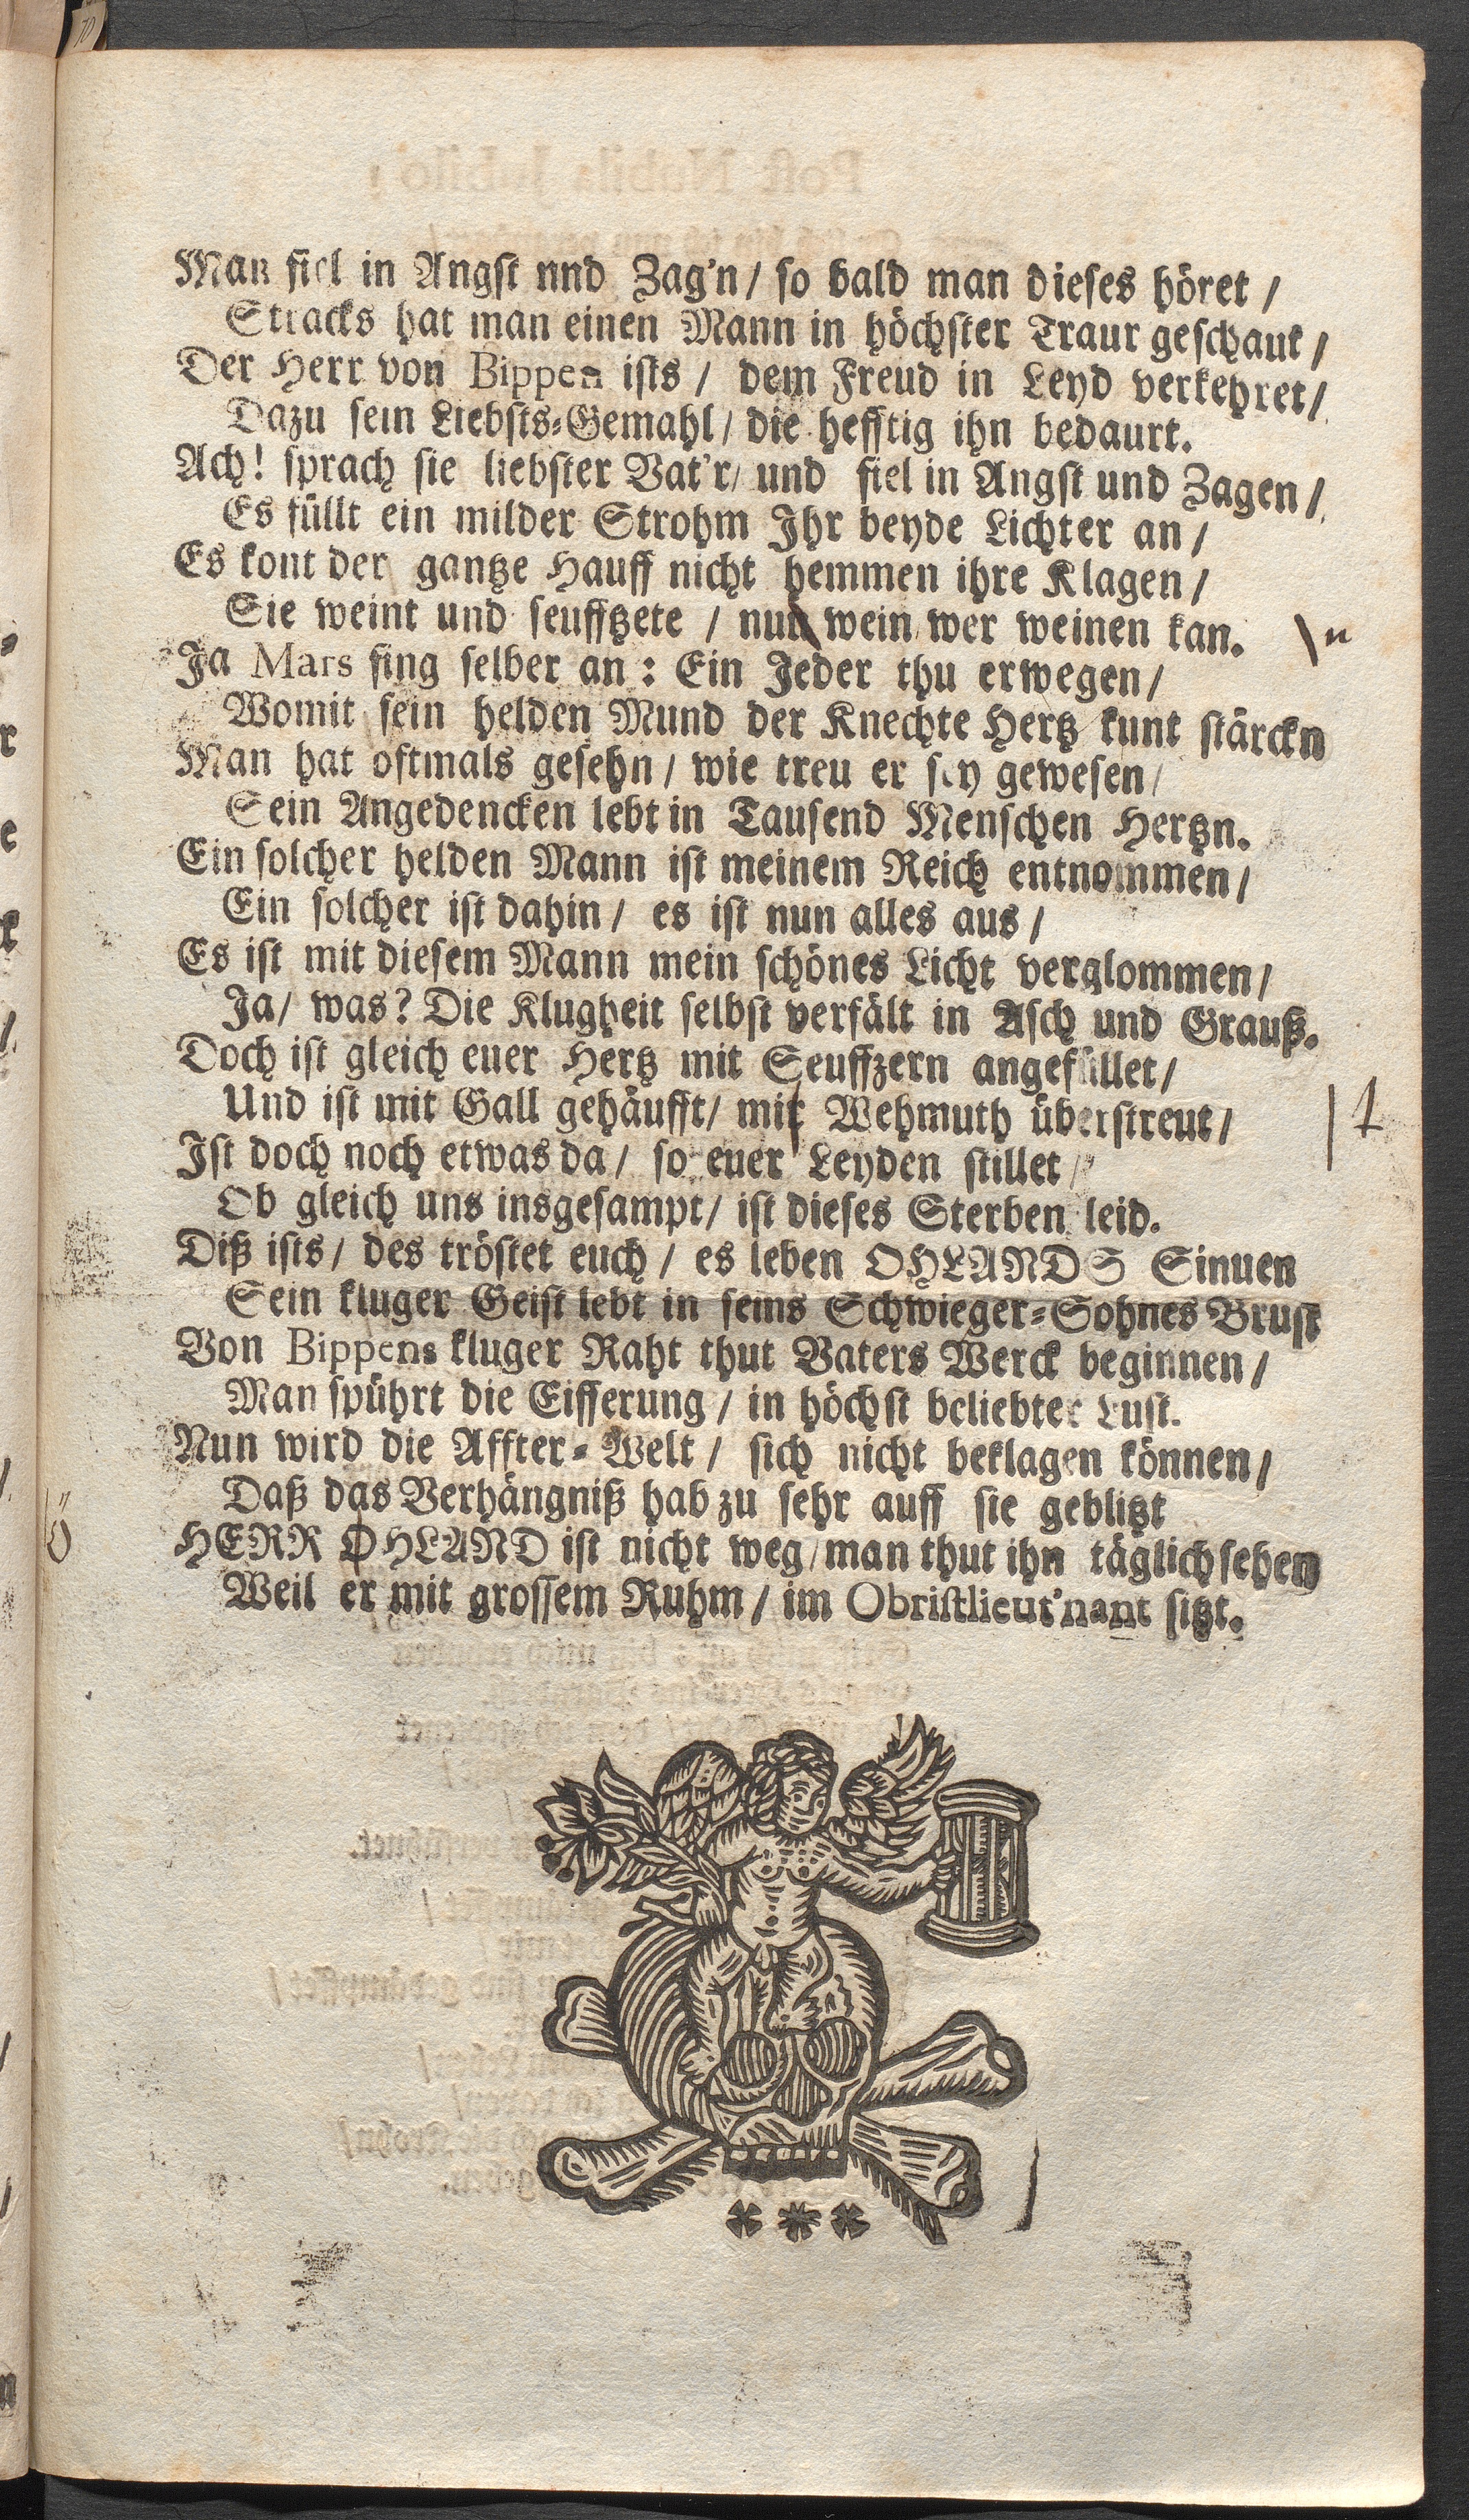 Man fiel in Angst nnd Zag'n / so bald man dieses höret /
Stracks hat man einen Mann in höchster Traur geschaut /
Der Herr von Bippen ists / dem Freud in Leyd verkehret /
Dazu sein Liebsts-Gemahl / die hefftig ihn bedaurt.
Ach! sprach sie liebster Vat'r / und fiel in Angst und Zagen /
Es füllt ein milder Strohm Ihr beyde Lichter an /
Es kont der gantze Hauff nicht hemmen ihre Klagen /
Sie weint und seufftzete / nun wein wer weinen kan.
n
Ja Mars fing selber an : Ein Jeder thu erwegen /
Womit sein helden Mund der Knechte Hertz kunt stärckn
Man hat oftmals gesehn / wie treu er sey gewesen /
Sein Angedencken lebt in Tausend Menschen Hertzn.
Ein solcher helden Mann ist meinem Reich entnommen /
Ein solcher ist dahin / es ist nun alles aus /
Es ist mit diesem Mann mein schönes Licht verglommen /
Ja / was? Die Klugheit selbst verfält in Asch und Grauß.
Doch ist gleich euer Hertz mit Seuffzern angefüllet /
Und ist mit Gall gehäufft / mit Wehmuth überstreut /
Ist doch noch etwas da / so euer Leyden stillet /
Ob gleich uns insgesampt / ist dieses Sterben leid.
Diß ists / des tröstet euch / es leben OHLANDS Sinuen
Sein kluger Geist lebt in seins Schwieger-Sohnes Brust
Von Bippens kluger Raht thut Vaters Werck beginnen /
Man spührt die Eifferung / in höchst beliebter Lust.
Nun wird die Affter-Welt / sich nicht beklagen können /
Daß das Verhängniß hab zu sehr auff sie geblitzt
HERR OHLAND ist nicht weg / man thut ihn täglich sehen
Weil er mit grossem Ruhm / im Obristlieut'nant sitzt.